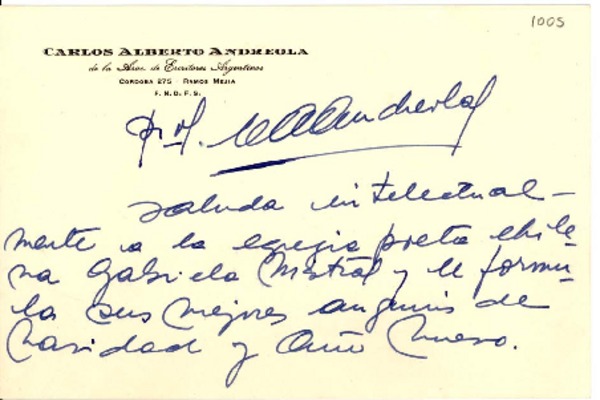 1005
CARLOS ALBERTO ANDREOLA
de la Asoc. de Escritores Argentinos
CORDOBA 275 - RAMOS MEJIA
F. N. D. F. S.
Prof. C A Andreola
saluda intelectual-
mente a la egregia poeta chile-
na Gabriela Mistral y le formu-
la sus mejores augurios de
Navidad y Año Nuevo.